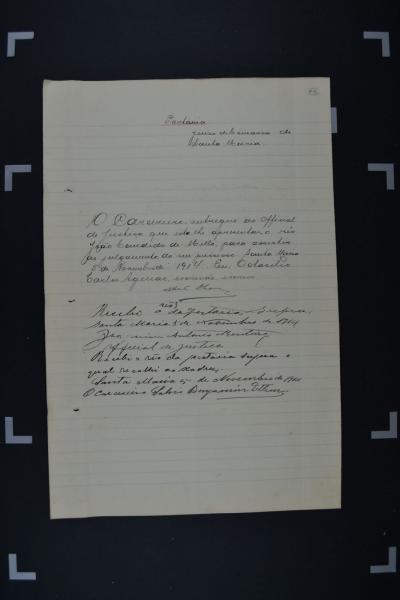 Portaria
Juizo da Comarca de
Santa Maria.
O Carcereiro, entregue ao Official
de Justiça que este lhe apresentar o réo
João Candido de Mello, para assistir
ao julgamento do seu processo Santa Maria
5 de Novembro de 1914. Eu, Octacilio
Carlos Aguiar, escrivão
Recebi o réo da portaria supra,
Santa Maria 5 de Novembro de 1914
Antonio Monteiro
Official de Justiça
Recebi o réo da portaria supra o
qual recolhi ao xadrez,
Santa Maria 5 de Novembro de 1914
O Carcereiro Benjamin